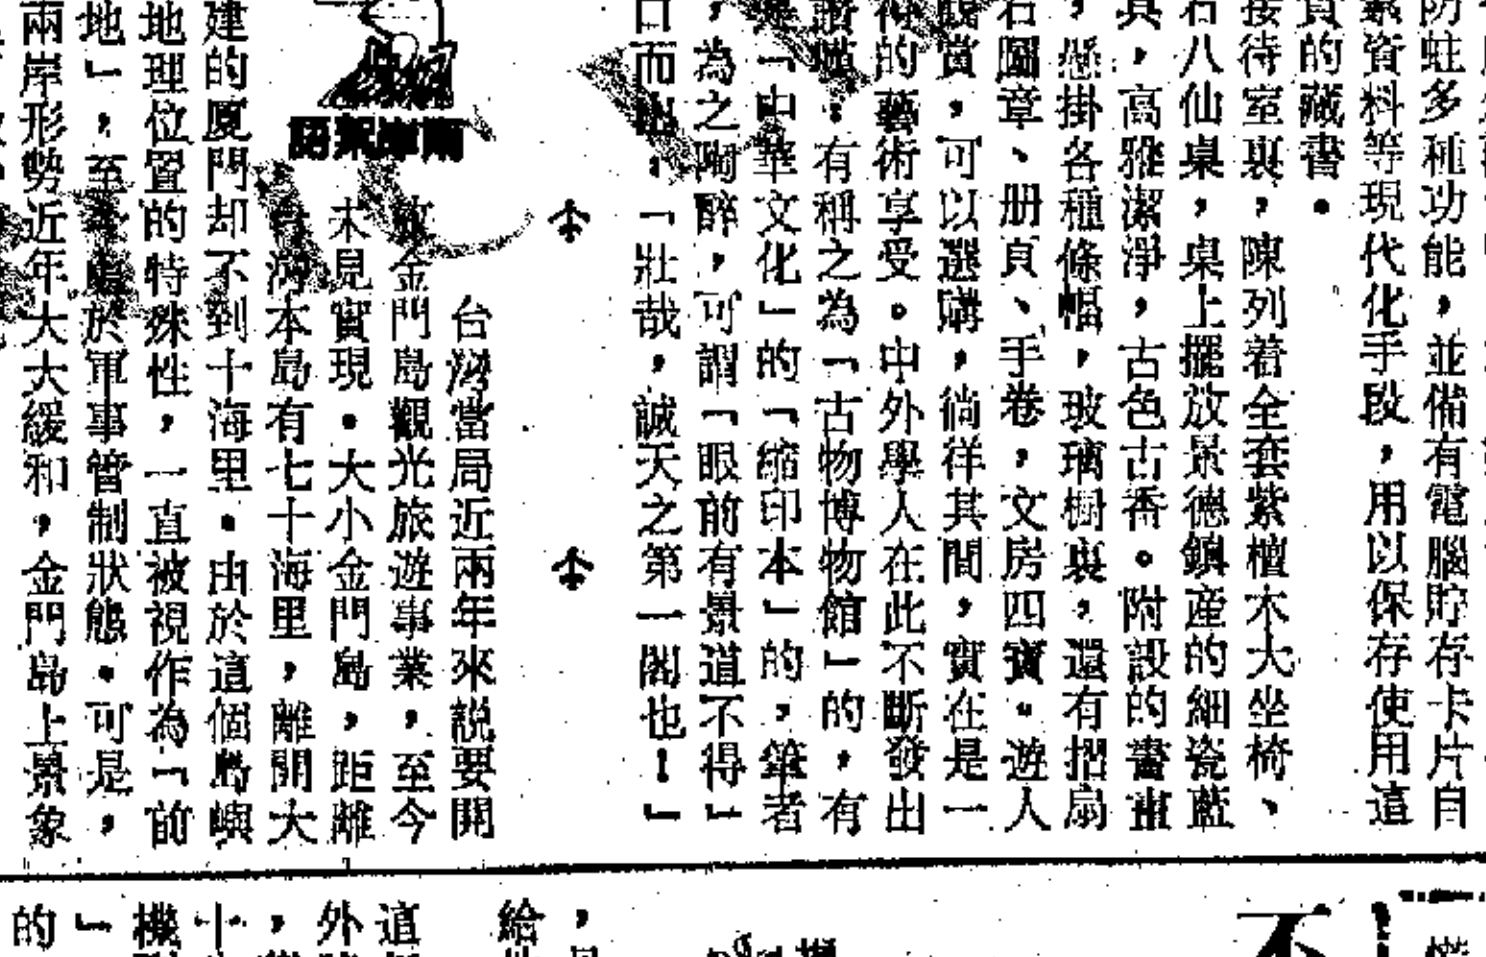 防蛀多種功能，並備有電腦貯存卡片自
資料等現代化手段，用以保存使用這
的藏書。
接待室裏，陳列着全套紫檀木大坐椅、
石八仙桌，桌上擺放景德鎮產的細瓷藍
具，高雅潔淨，古色古香。附設的書畫
，懸掛各種條幅，玻璃橱裏，還有摺扇
石圖章、册頁、手卷，文房四寶。遊人
觀賞，可以選購，徜徉其間，實在是一
的藝術享受。中外學人在此不斷發出
有稱之為「古物博物館」的，有
「中華文化」的「縮印本」的，筆者
，為之陶醉，可謂「眼前有景道不得」
口而出：「壯哉，誠天之第一閣也！」
兩岸
台灣當局近兩年來説要開
放金門島觀光旅遊事業，至今
未見實現。大小金門島，距離
台灣本島有七十海里，離開大
建的廈門却不到十海里。由於這個島嶼
地理位置的特殊性，一直被視作為「前
地」，至今處於軍事管制狀態。可是，
兩岸形勢近年大大緩和，金門島上景象
不
給
這
外
機
的